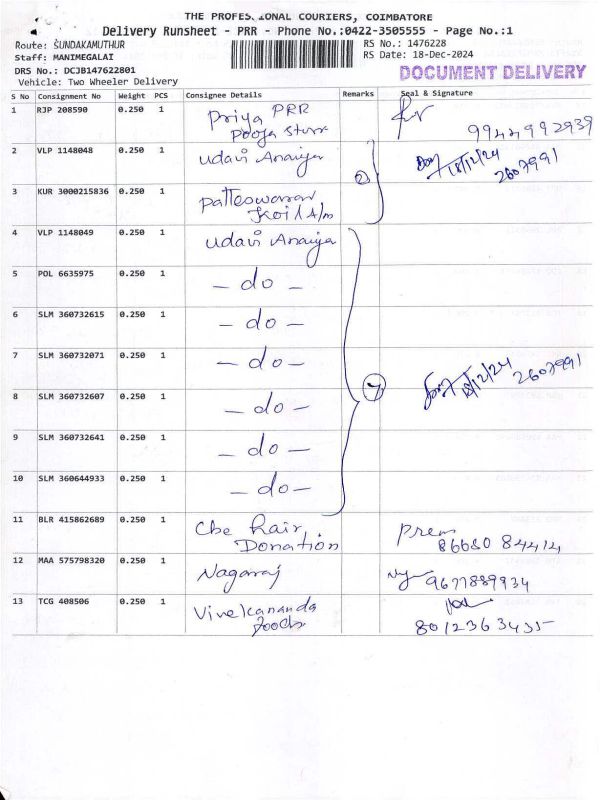 THE PROFESSIONAL COURIERS, COIMBATORE
Delivery Runsheet - PRR - Phone No.:0422-3505555 - Page No.:1
Route: SUNDAKAMUTHUR
RS No.: 1476228
Staff: MANIMEGALAI
RS Date: 18-Dec-2024
DRS No.: DCJB147622801
DOCUMENT DELIVERY
Vehicle: Two Wheeler Delivery
S No Consignment No Weight PCS Consignee Details Remarks Seal & Signature
1 RJP 208590 0.250 1 Priya PRR
Pooja
9944992939
2 VLP 1148048 0.250 1 udavi
18/12/24
2607991
2
3 KUR 3000215836 0.250 1 Patteswaran
Koil
4 VLP 1148049 0.250 1 udavi
5 POL 6635975 0.250 1 - do -
6 SLM 360732615 0.250 1 - do -
7 SLM 360732071 0.250 1 - do -
7
18/12/24
2607991
8 SLM 360732607 0.250 1 - do -
9 SLM 360732641 0.250 1 - do -
10 SLM 360644933 0.250 1 - do -
11 BLR 415862689 0.250 1 Cbe hair
Donation
Prem
86680 84414
12 MAA 575798320 0.250 1 Nagaraj
9677889934
13 TCG 408506 0.250 1 Vivekananda
foods
8012363435